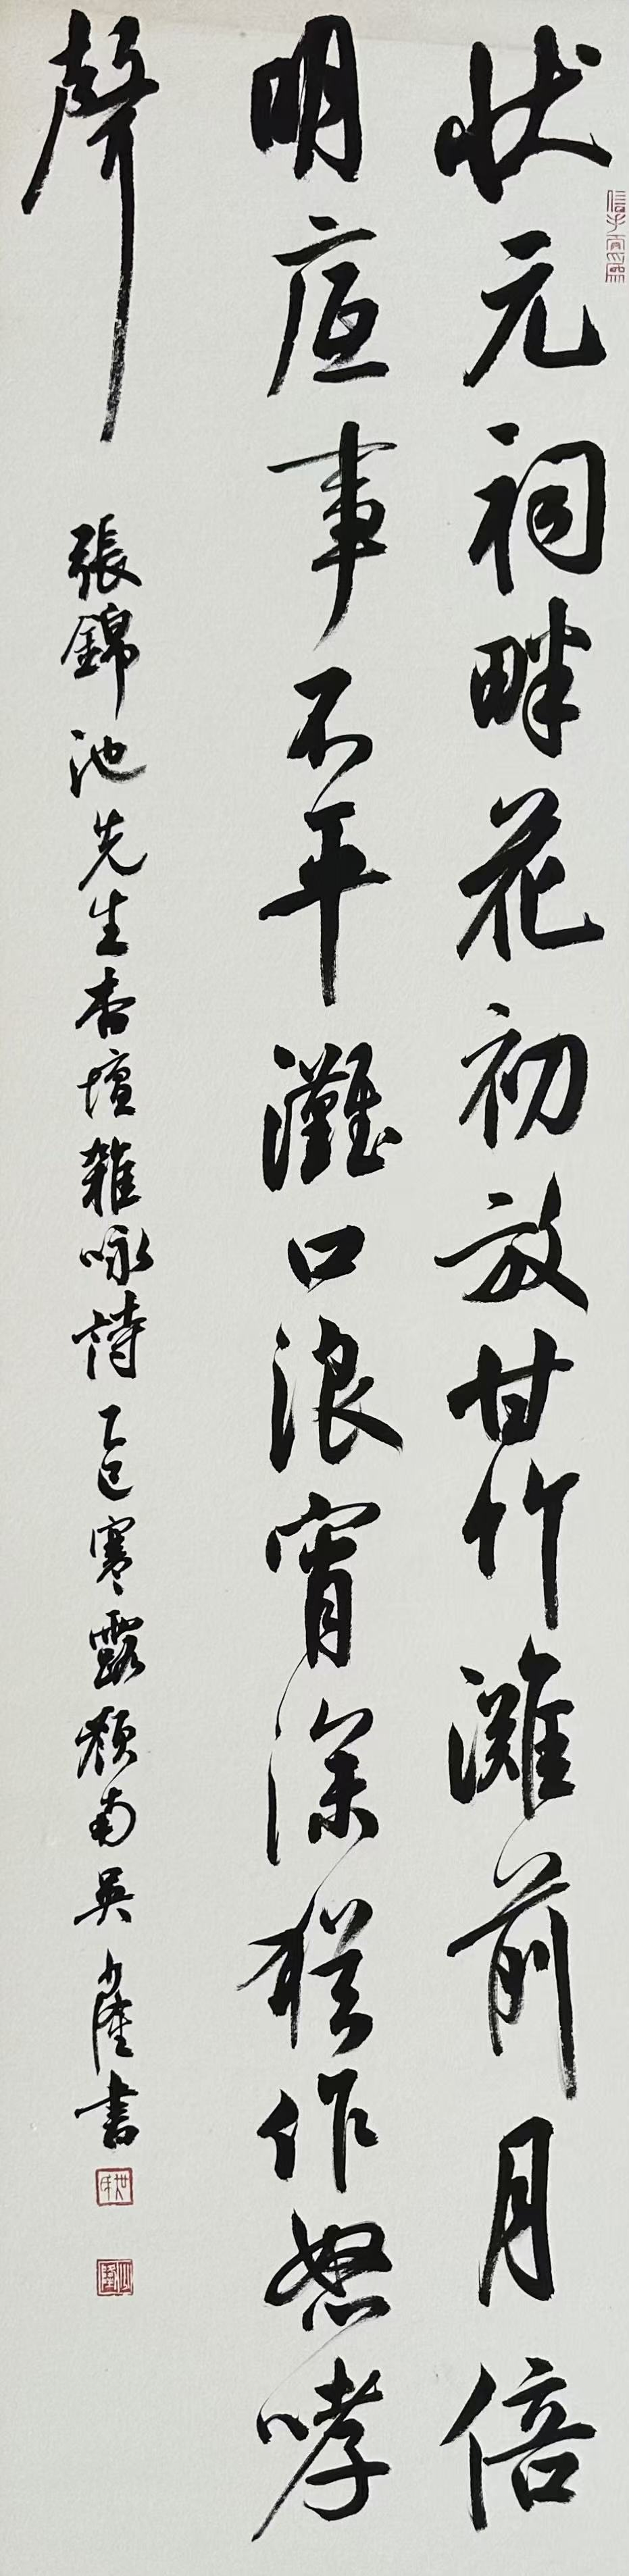 状元祠畔花初放甘竹灘前月倍
明底事不平灘口浪宵深猶作怒哮
聲
張錦池先生杏壇雜咏詩乙巳寒露南吳書